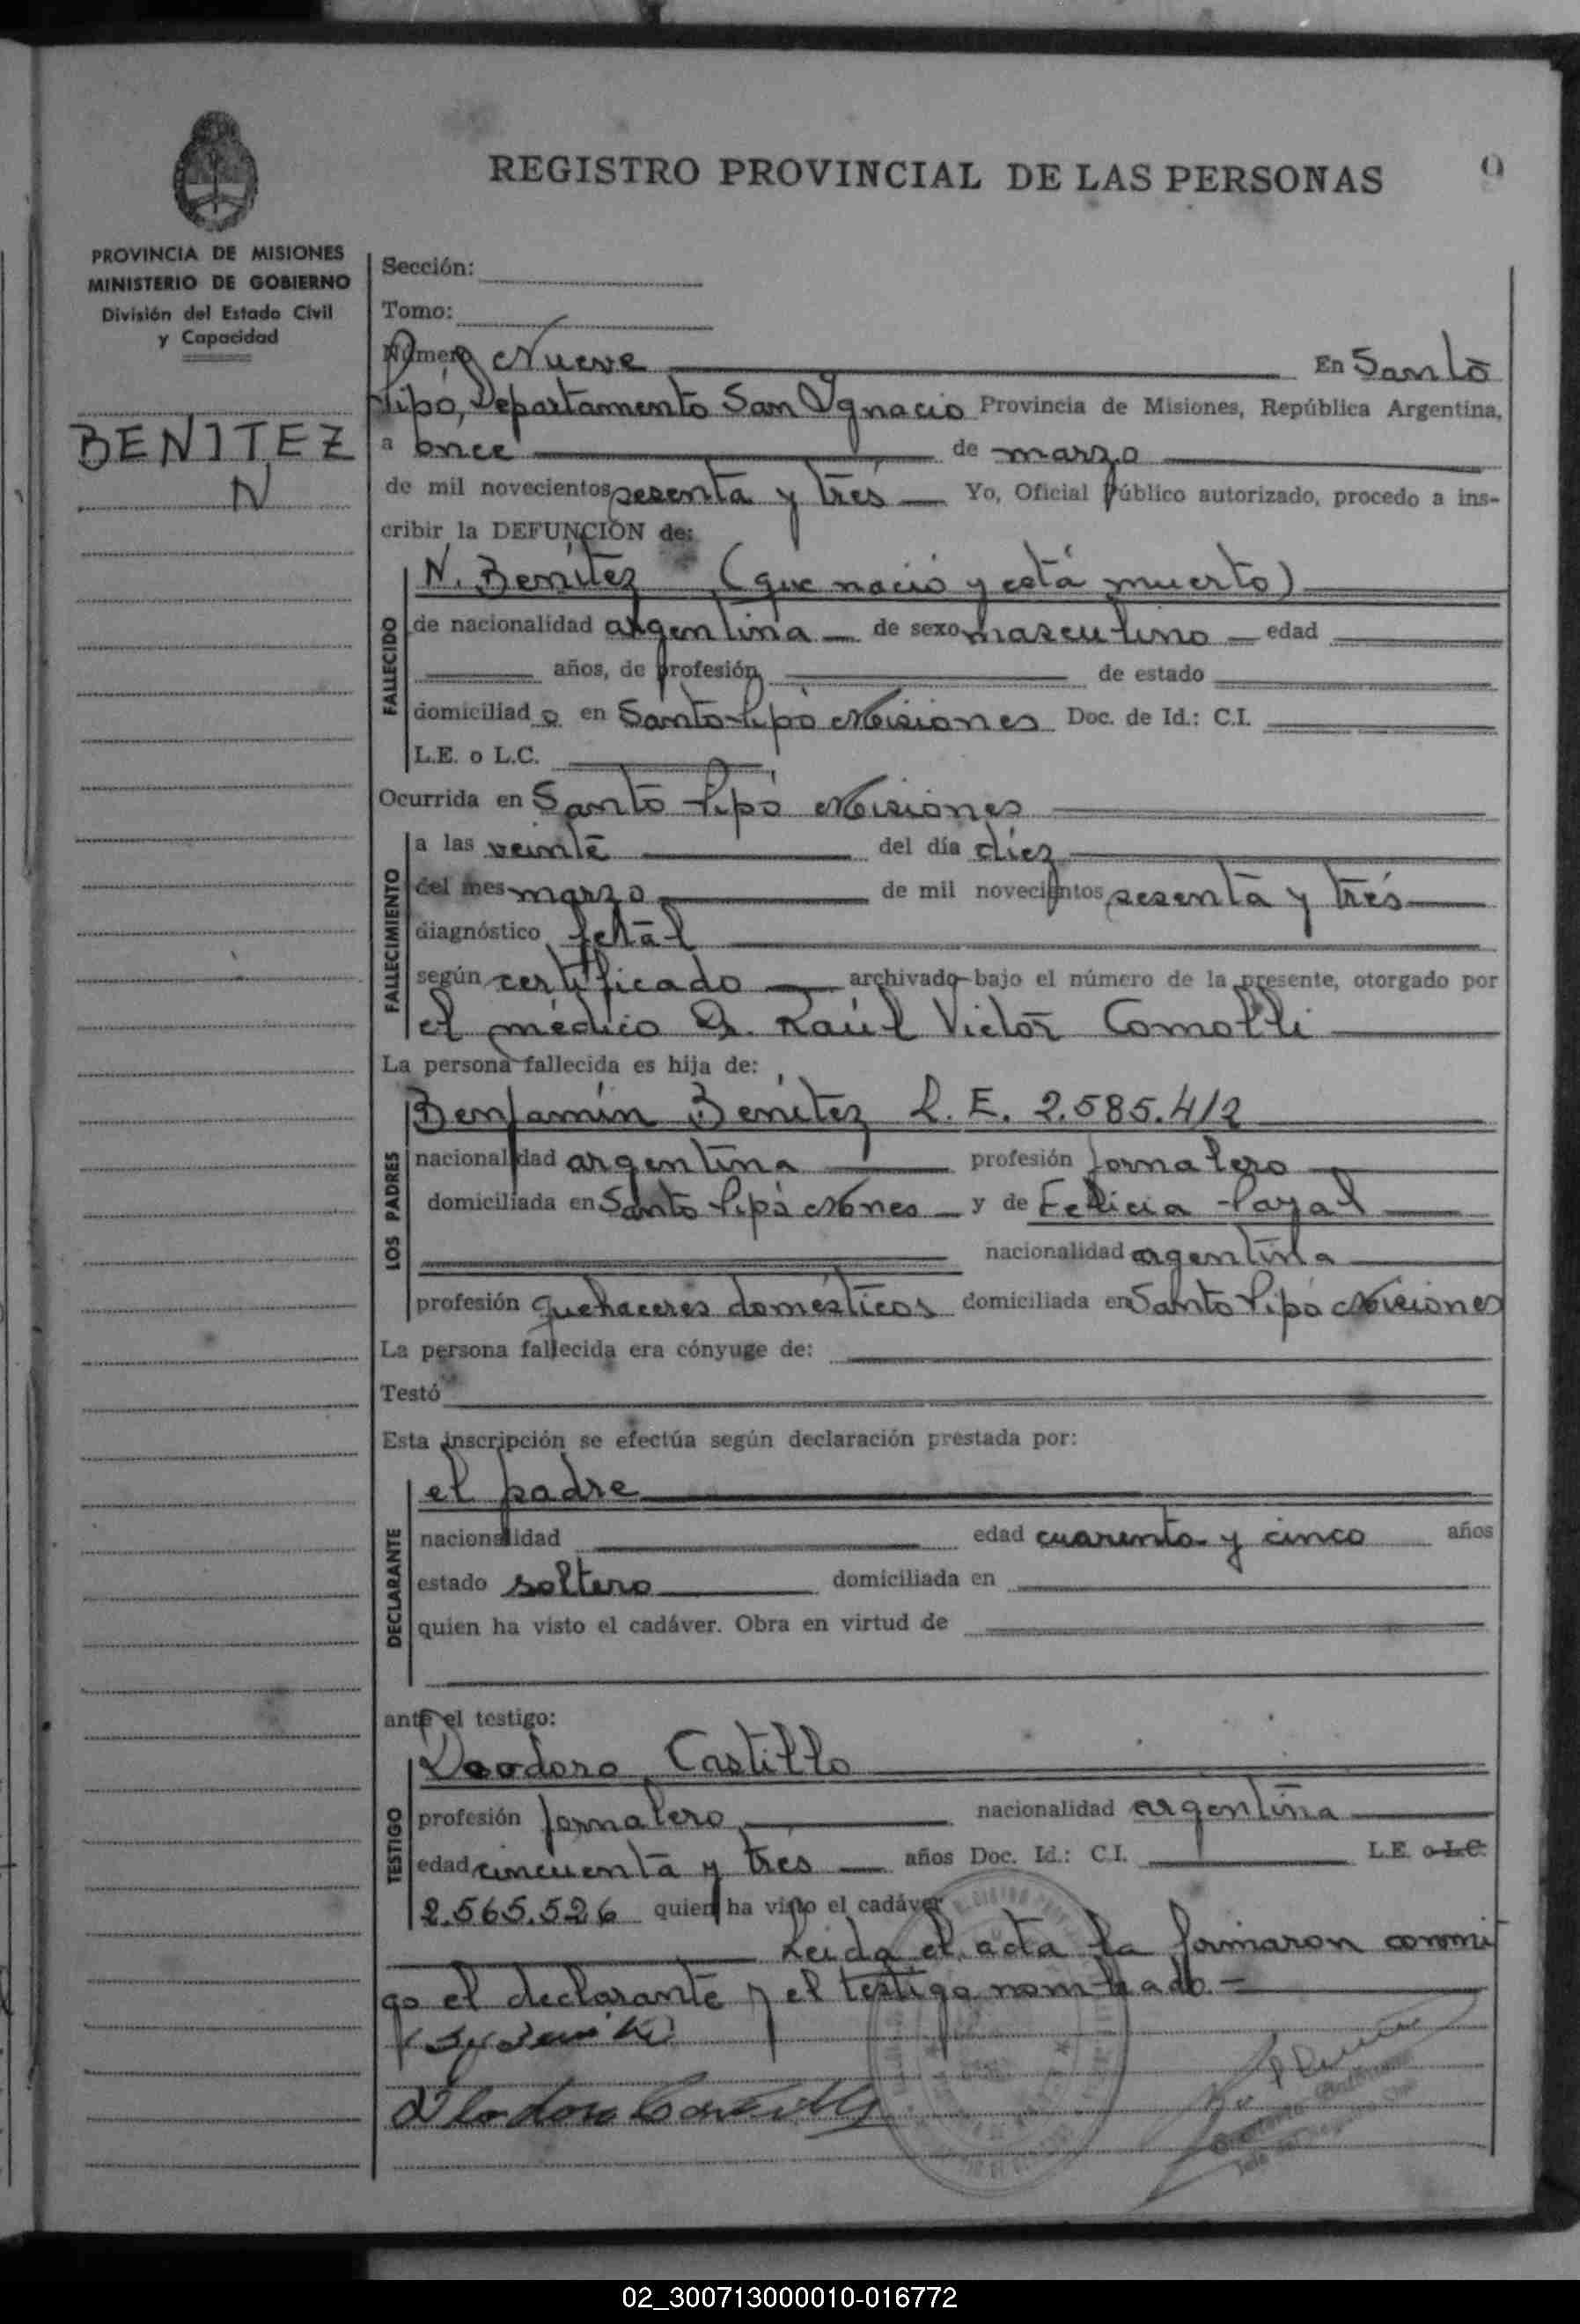 REGISTRO PROVINCIAL DE LAS PERSONAS
9
PROVINCIA DE MISIONES
MINISTERIO DE GOBIERNO
División del Estado Civil
y Capacidad
BENITEZ
N
Sección:
Tomo:
Número Nueve En Santo
Pipó, Departamento San Ygnacio Provincia de Misiones, República Argentina,
a once de marzo
de mil novecientos sesenta y tres Yo, Oficial Público autorizado, procedo a ins-
cribir la DEFUNCIÓN de:
N. Benítez (que nació y está muerto)
FALLECIDO
de nacionalidad argentina de sexo masculino edad
años, de profesión de estado
domiciliado en Santo Pipó Misiones Doc. de Id.: C.I.
L.E. o L.C.
Ocurrida en Santo Pipó Misiones
FALLECIMIENTO
a las veinte del día diez
del mes marzo de mil novecientos sesenta y tres
diagnóstico fetal
según certificado archivado bajo el número de la presente, otorgado por
el médico Dr. Raúl Victor Comolli
La persona fallecida es hija de:
Benjamín Benítez L.E. 2.585.412
LOS PADRES
nacionalidad argentina profesión jornalero
domiciliada en Santo Pipó Mnes y de Felicia Payal
nacionalidad argentina
profesión quehaceres domésticos domiciliada en Santo Pipó Misiones
La persona fallecida era cónyuge de:
Testó
Esta inscripción se efectúa según declaración prestada por:
el padre
DECLARANTE
nacionalidad edad cuarenta y cinco años
estado soltero domiciliada en
quien ha visto el cadáver. Obra en virtud de
ante el testigo:
Deodoro Castillo
TESTIGO
profesión jornalero nacionalidad argentina
edad cincuenta y tres años Doc. Id.: C.I. L.E. o L.C.
2.565.526 quien ha visto el cadáver
Leída el acta la firmaron conmi
go el declarante y el testigo nombrado.-
02_300713000010-016772